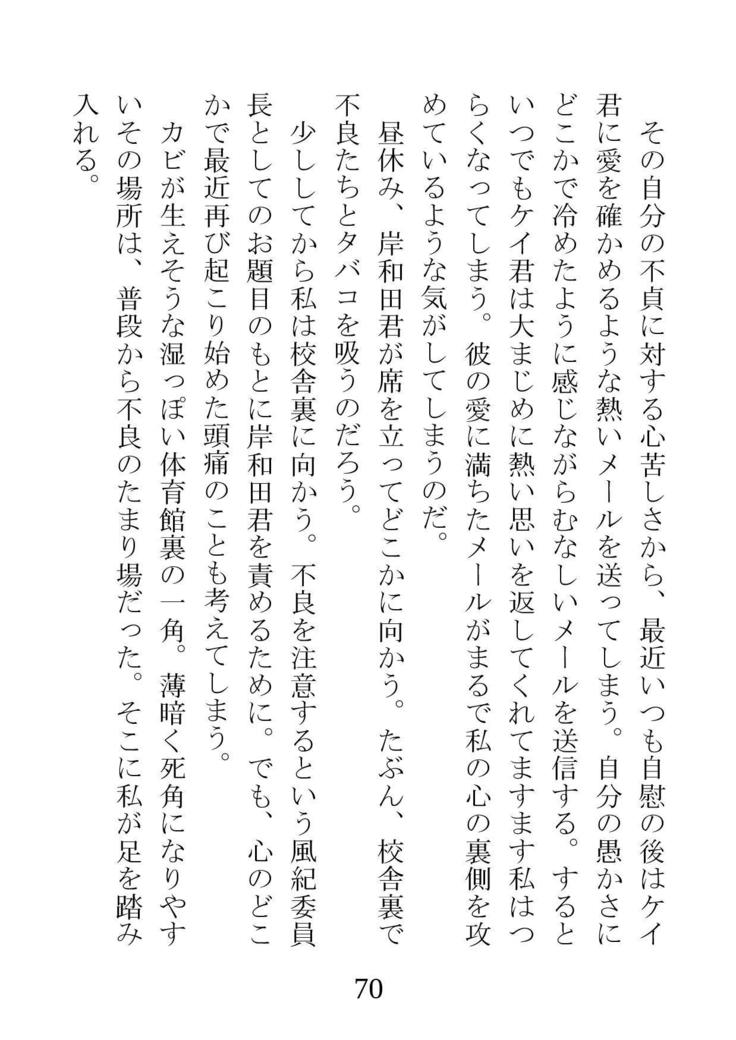 その自分の不貞に対する心苦しさから、最近いつも自慰の後はケイ
君に愛を確かめるような熱いメールを送ってしまう。自分の愚かさに
どこかで冷めたように感じながらむなしいメールを送信する。すると
いつでもケイ君は大まじめに熱い思いを返してくれてますます私はつ
らくなってしまう。彼の愛に満ちたメールがまるで私の心の裏側を攻
めているような気がしてしまうのだ。
昼休み、岸和田君が席を立ってどこかに向かう。たぶん、校舎裏で
不良たちとタバコを吸うのだろう。
少ししてから私は校舎裏に向かう。不良を注意するという風紀委員
長としてのお題目のもとに岸和田君を責めるために。でも、心のどこ
かで最近再び起こり始めた頭痛のことも考えてしまう。
カビが生えそうな湿っぽい体育館裏の一角。薄暗く死角になりやす
いその場所は、普段から不良のたまり場だった。そこに私が足を踏み
入れる。
70